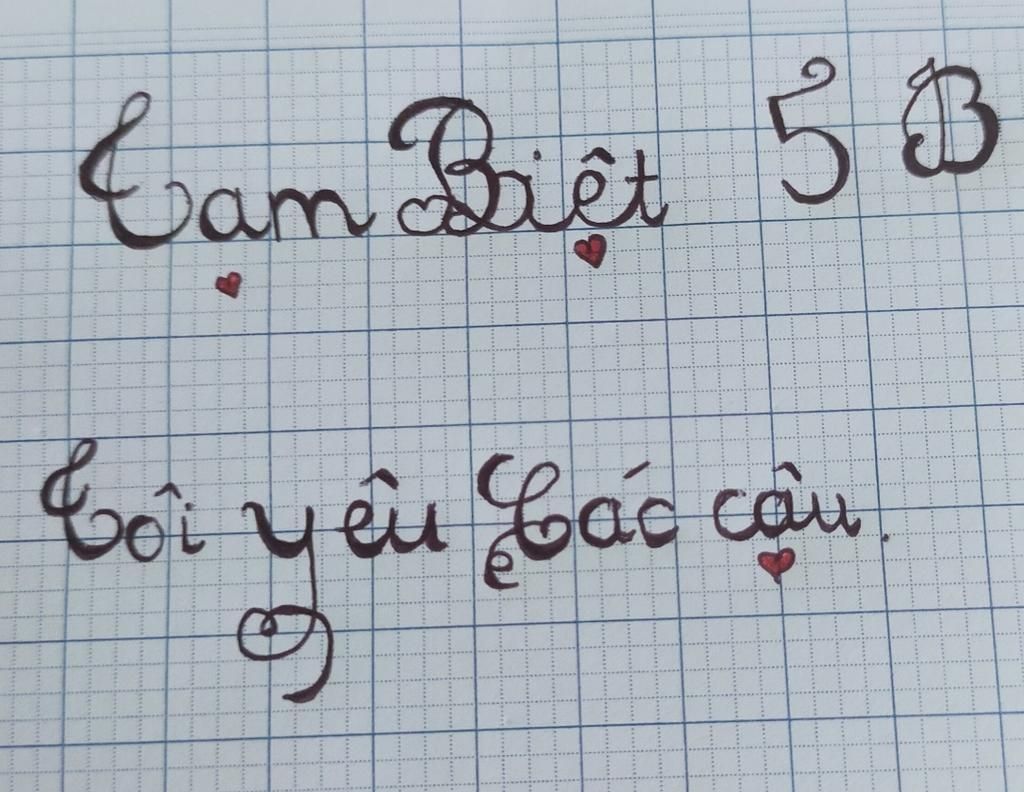 Tạm Biệt 5 B
Tôi yêu Các cậu.